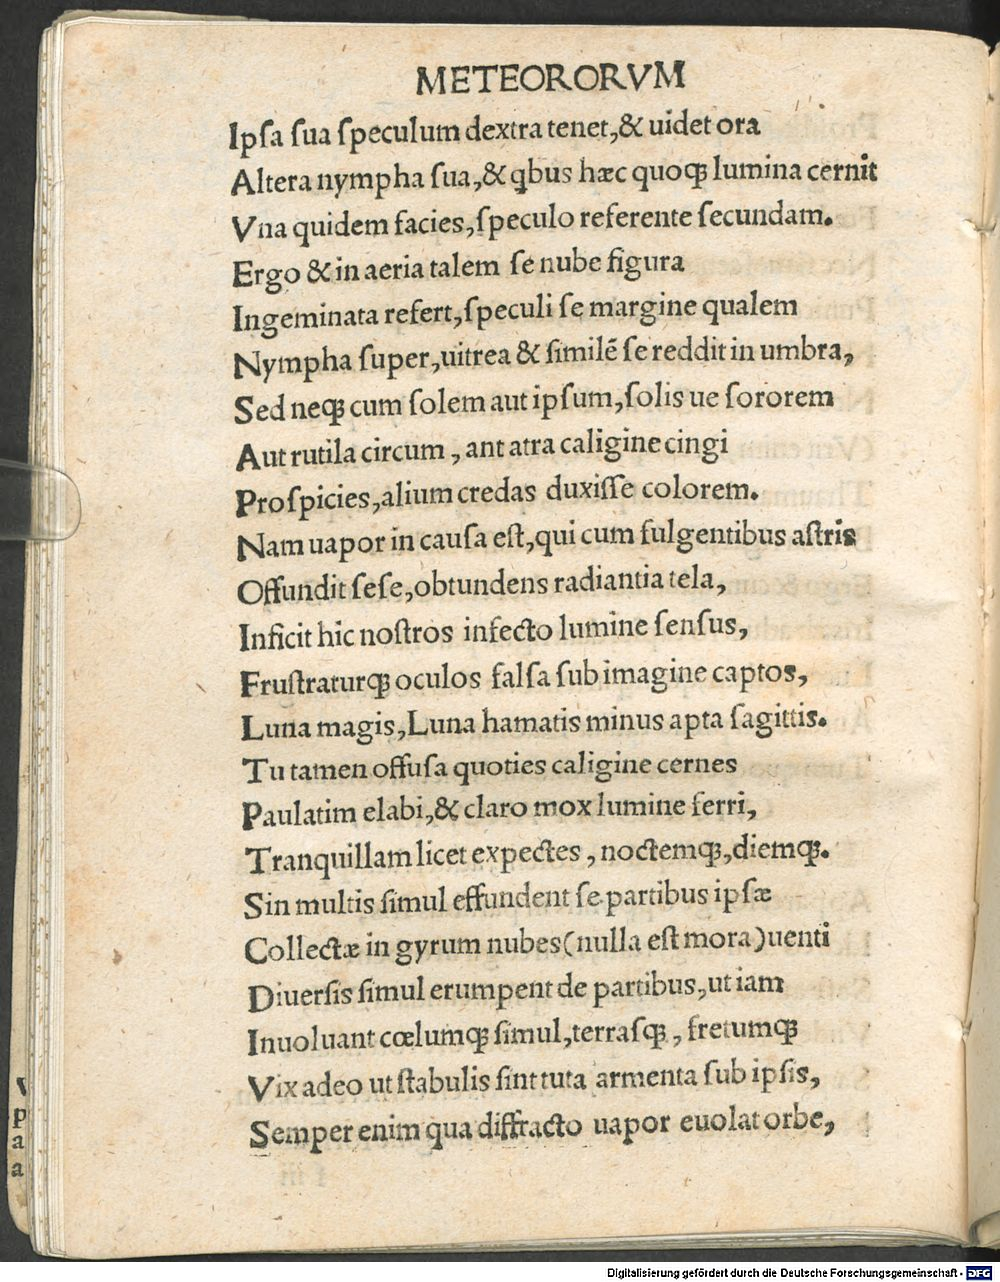 METEORORVM
Ipſa ſua ſpeculum dextra tenet,& uidet ora
Altera nympha ſua,& qbus hæc quoqꝫ lumina cernit
Vna quidem facies,ſpeculo referente ſecundam.
Ergo & in aeria talem ſe nube figura
Ingeminata refert,ſpeculi ſe margine qualem
Nympha ſuper,uitrea & ſimilē ſe reddit in umbra,
Sed neqꝫ cum ſolem aut ipſum,ſolis ue ſororem
Aut rutila circum , ant atra caligine cingi
Proſpicies,alium credas duxiſſe colorem.
Nam uapor in cauſa eſt,qui cum fulgentibus aſtris
Offundit ſeſe,obtundens radiantia tela,
Inficit hic noſtros infecto lumine ſenſus,
Fruſtraturqꝫ oculos falſa ſub imagine captos,
Luna magis,Luna hamatis minus apta ſagittis.
Tu tamen offuſa quoties caligine cernes
Paulatim elabi,& claro mox lumine ferri,
Tranquillam licet expectes , noctemqꝫ,diemqꝫ.
Sin multis ſimul effundent ſe partibus ipſæ
Collectæ in gyrum nubes(nulla eſt mora)uenti
Diuerſis ſimul erumpent de partibus,ut iam
Inuoluant cœlumqꝫ ſimul,terraſqꝫ , fretumqꝫ
Vix adeo ut ſtabulis ſint tuta armenta ſub ipſis,
Semper enim qua diffracto uapor euolat orbe,
Digitalisierung gefördert durch die Deutsche Forschungsgemeinschaft - DFG